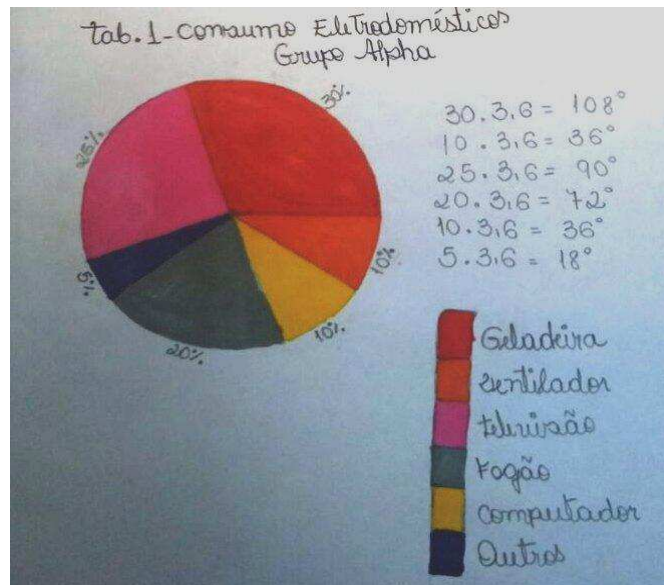 Tab. 1 - Consumo Eletrodomésticos
Grupo Alpha
30%
25%
5%
20%
10%
10%
30.3,6 = 108°
10.3,6 = 36°
25.3,6 = 90°
20.3,6 = 72°
10.3,6 = 36°
5.3,6 = 18°
Geladeira
Ventilador
Televisão
Fogão
Computador
Outros